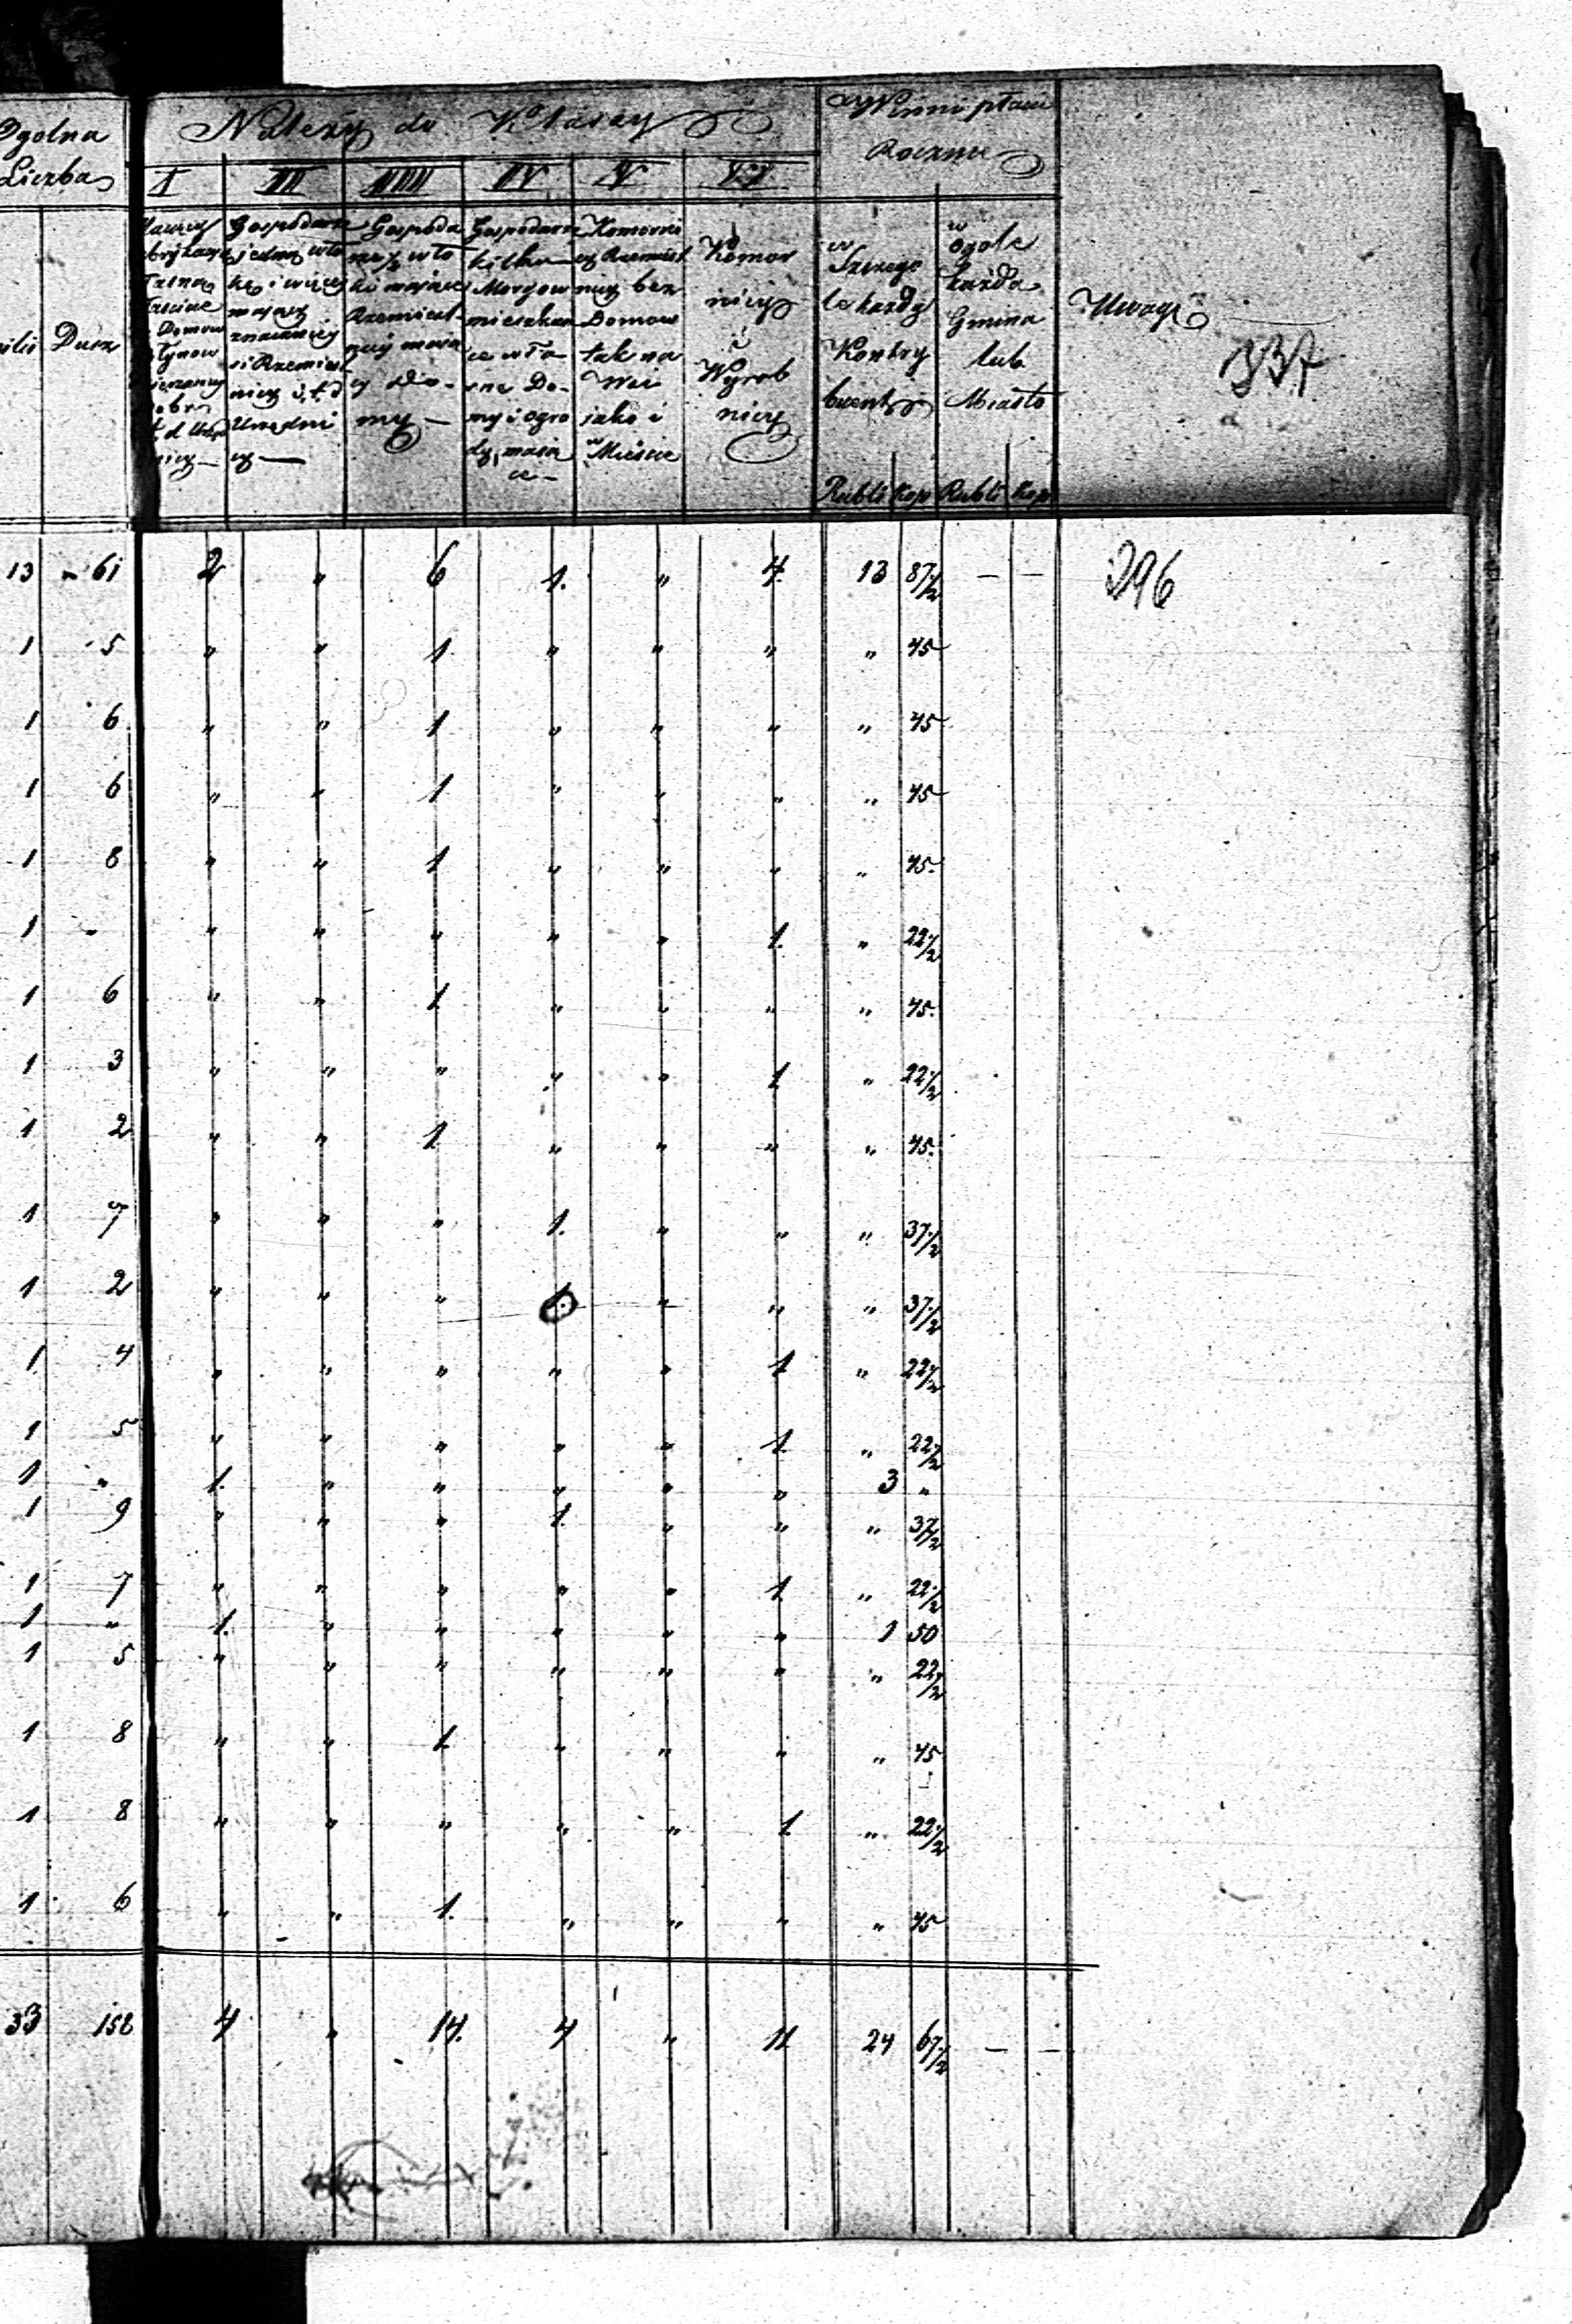 Ogólna
Liczba
Dusz
Należy do Klassy
I II III IV V VI
Gospodarze
jedną wło
kę i więcej
mający
znaczniej
si Rzemieśl
nicy i t. d
Urzędni
cy —
Gospoda
rze ½ wło
ki mające
Rzemieśl
nicy mają
cy Do-
my —
Gospodarze
kilku
Morgow
mieszkan
ce wła
sne Do-
my i ogro
dy mają
ce -
Komorni
cy Rzemieśl
nicy bez
Domow
tak na
Wsi
jako i
w Mieście
Komor
nicy
i
Wyrob
nicy
Winni płacić
Rocznie
w
Szczego
le każdy
Kontry
buent
Rubli Kop
w
ogole
każda
Gmina
lub
Miasto
Rubli Kop
Uwagi
337
13 " 61 2 " 6 1. " 4. 13 87½ — —
296
1 5 " " 1 " " " " 45
1 6 " " 1 " " " " 45
1 6 " " 1 " " " " 45
1 8 " " 1 " " " " 45.
1 " " " " " " 1. " 22½
1 6 " " 1 " " " " 45.
1 3 " " " " " 1 " 22½
1 2 " " 1 " " " " 45.
1 7 " " " 1. " " " 37½
1 2 " " " 1. " " " 37½
1 4 " " " " " 1 " 22½
1 5 " " " " " 1 " 22½
1 " 1. " " " " " 3 "
1 9 " " " 1. " " " 37½
1 7 " " " " " 1 " 22½
1 " 1. " " " " " 1 50
1 5 " " " " " " " 22½
1 8 " " 1 " " " " 45
1 8 " " " " " 1 " 22½
1 6 " " 1. " " " " 45
33 158 4 " 14. 4 " 11 24 67½ — —